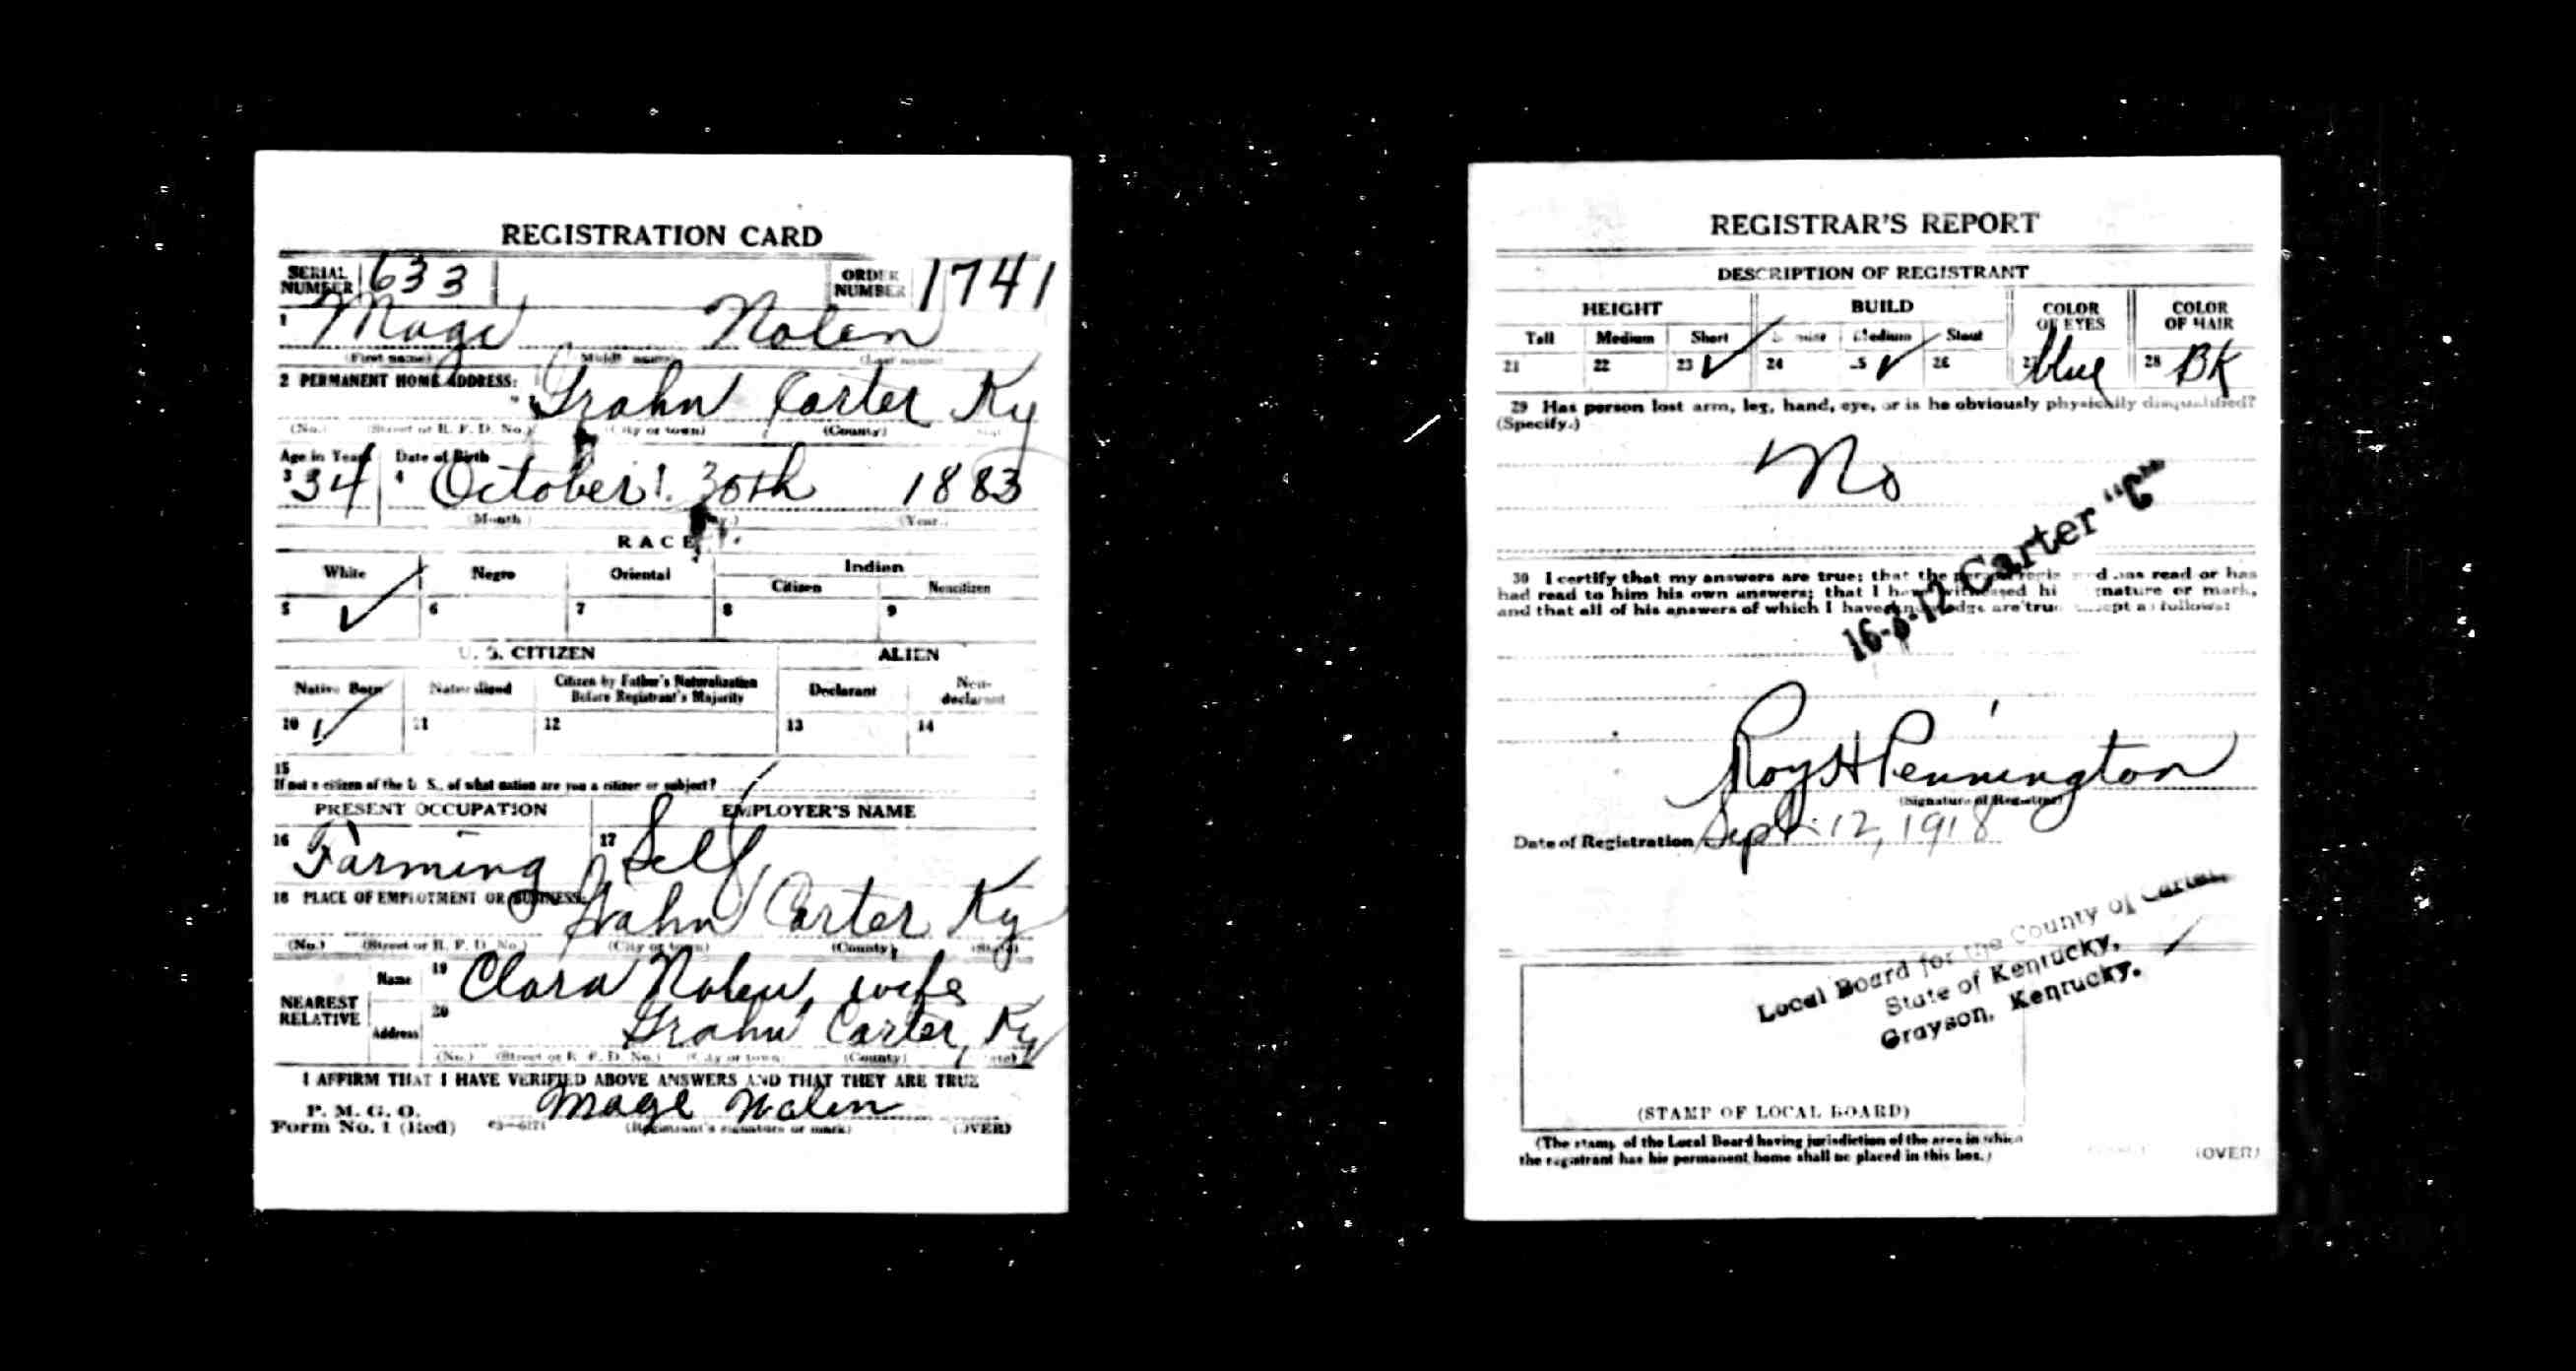 REGISTRATION CARD
SERIAL NUMBER 633 ORDER NUMBER 1741
1 Mage Nolen
(First name) (Middle name) (Last name)
2 PERMANENT HOME ADDRESS:
Grahn Carter Ky
(No.) (Street or R. F. D. No.) (City or town) (County)
Age in Years Date of Birth
3 34 4 October 30th 1883
(Month) (Day.) (Year.)
RACE
White Negro Oriental Indian
Citizen Noncitizen
5 ✓ 6 7 8 9
U. S. CITIZEN ALIEN
Native Born Naturalized Citizen by Father's Naturalization Before Registrant's Majority Declarant Non-declarant
10 ✓ 11 12 13 14
15
If not a citizen of the U. S., of what nation are you a citizen or subject?
PRESENT OCCUPATION EMPLOYER'S NAME
16 Farming 17 Self
18 PLACE OF EMPLOYMENT OR BUSINESS:
Grahn Carter Ky
(No.) (Street or R. F. D. No.) (City or town) (County) (State)
NEAREST RELATIVE
Name 19 Clara Nolen, wife
Address 20 Grahn Carter, Ky
(No.) (Street or R. F. D. No.) (City or town) (County) (State)
I AFFIRM THAT I HAVE VERIFIED ABOVE ANSWERS AND THAT THEY ARE TRUE
P. M. G. O.
Form No. 1 (Red) Mage Nolen
(Registrant's signature or mark) (OVER)
REGISTRAR'S REPORT
DESCRIPTION OF REGISTRANT
HEIGHT BUILD COLOR OF EYES COLOR OF HAIR
Tall Medium Short Medium Stout
21 22 23 ✓ 24 25 ✓ 26 27 blue 28 BK
29 Has person lost arm, leg, hand, eye, or is he obviously physically disqualified?
(Specify.)
No
30 I certify that my answers are true; that the person registered has read or has
had read to him his own answers; that I have witnessed his signature or mark,
and that all of his answers of which I have knowledge are true, except as follows:
Carter "C"
Roy H Pennington
(Signature of Registrar)
Date of Registration Sept. 12, 1918
Local Board for the County of Carter,
State of Kentucky,
Grayson, Kentucky.
(STAMP OF LOCAL BOARD)
(The stamp of the Local Board having jurisdiction of the area in which
the registrant has his permanent home shall be placed in this box.)
(OVER)